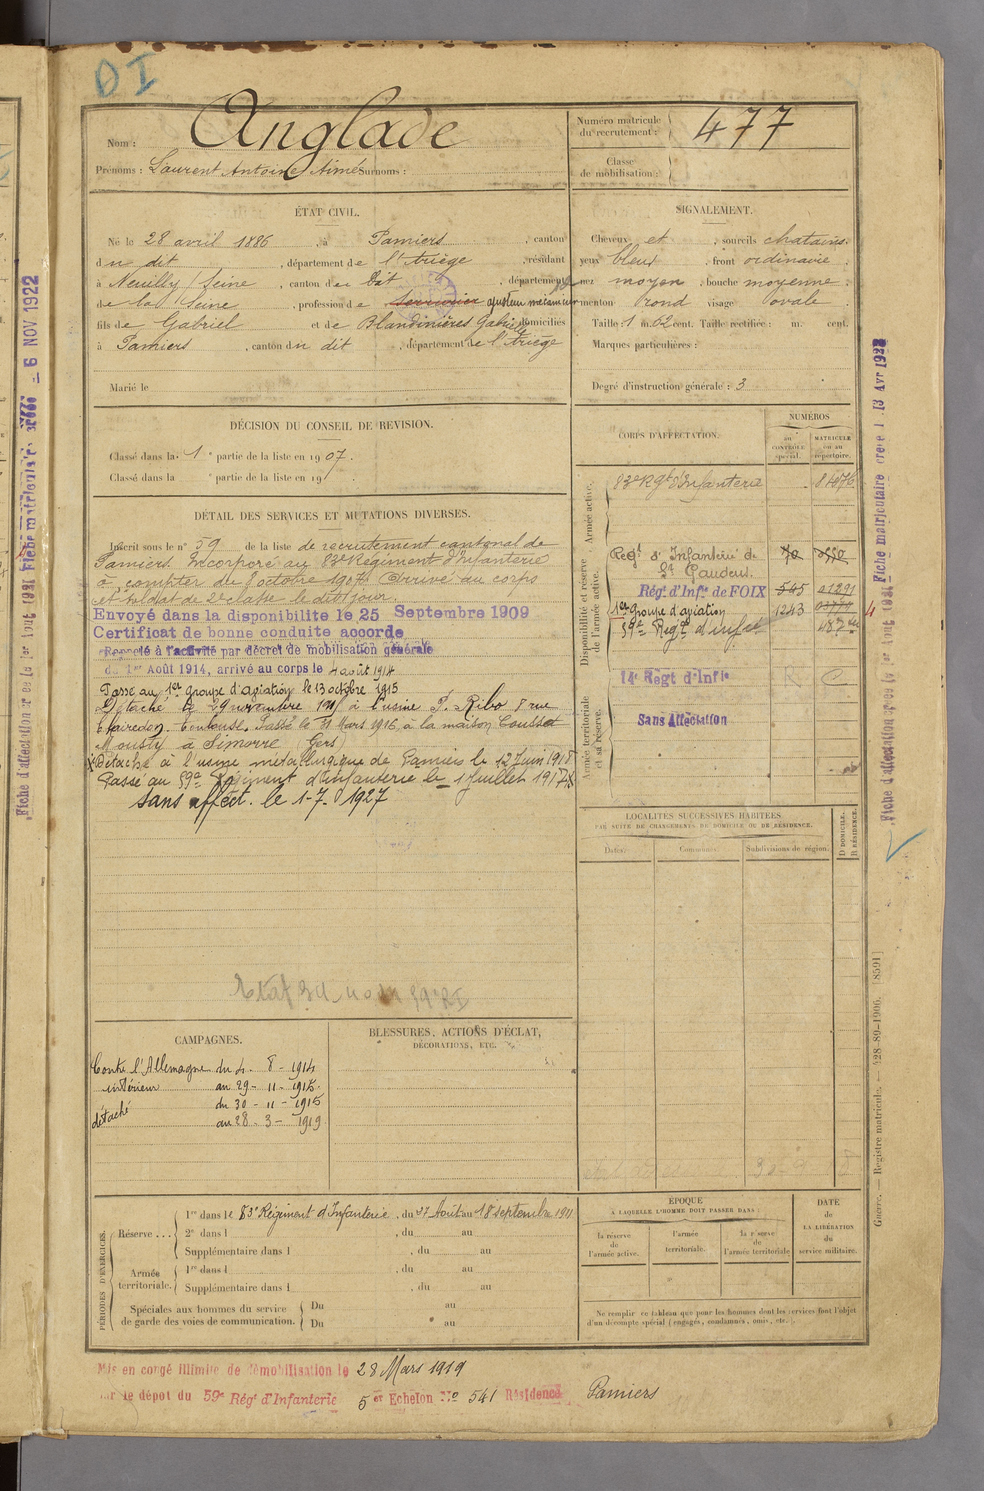 DI
Nom : Anglade
Prénoms : Laurent Antoine Aimé Surnoms :
Numéro matricule du recrutement : 477
Classe de mobilisation :
ÉTAT CIVIL.
Né le 28 avril 1886, à Pamiers, canton
du dit, département de l'Ariège, résidant
à Neuilly / Seine, canton de dit, département
de la Seine, profession de serrurier ajusteur mécanicien
fils de Gabriel et de Blandinières Gabrielle domiciliés
à Pamiers, canton du dit, département de l'Ariège
Marié le
SIGNALEMENT.
Cheveux et, sourcils chatains.
yeux bleus, front ordinaire,
nez moyen, bouche moyenne,
menton rond visage ovale.
Taille : 1 m. 62 cent. Taille rectifiée : m. cent.
Marques particulières :
Degré d'instruction générale : 3
DÉCISION DU CONSEIL DE REVISION.
Classé dans la 1e partie de la liste en 1907.
Classé dans la partie de la liste en 19
DÉTAIL DES SERVICES ET MUTATIONS DIVERSES.
Inscrit sous le n° 59 de la liste de recrutement cantonal de
Pamiers. Incorporé au 83e Régiment d'Infanterie
à compter du 8 octobre 1907. Arrivé au corps
et soldat de 2e classe le dit jour.
Envoyé dans la disponibilité le 25 Septembre 1909
Certificat de bonne conduite accordé
Rappelé à l'activité par décret de mobilisation générale
du 1er Août 1914, arrivé au corps le 4 août 1914
Passé au 1er groupe d'aviation le 13 octobre 1915
Détaché le 29 novembre 1915 à l'usine P. Ribo 8 rue
Toulouse. Passé le 31 Mars 1916 à la maison
à Simorre Gers
Détaché à l'usine métallurgique de Pamiers le 12 Juin 1918
Passé au 59e Régiment d'Infanterie le 1 Juillet 1917
sans affect. le 1-7-1927
CORPS D'AFFECTATION.
NUMÉROS
au CONTRÔLE spécial.
MATRICULE ou au répertoire.
Armée active.
83e Rgt d'Infanterie
Disponibilité et réserve de l'armée active.
Regt d'Infanterie de St Gaudens
Rég. d'Inf. de FOIX 545 01291
1er Groupe d'aviation 1243
59e Regt d'infie
Armée territoriale et sa réserve.
14e Regt d'Infie
Sans Affectation
LOCALITÉS SUCCESSIVES HABITÉES
PAR SUITE DE CHANGEMENTS DE DOMICILE OU DE RÉSIDENCE.
Dates. Communes. Subdivisions de région. D DOMICILE. R RÉSIDENCE.
CAMPAGNES.
Contre l'Allemagne du 4 - 8 - 1914
intérieur au 29 - 11 - 1915.
détaché du 30 - 11 - 1915
au 28 - 3 - 1919
BLESSURES, ACTIONS D'ÉCLAT,
DÉCORATIONS, ETC.
PÉRIODES D'EXERCICES.
Réserve ... 1re dans le 83e Régiment d'Infanterie, du 27 Août au 18 septembre 1911
2e dans l, du au
Supplémentaire dans l, du au
Armée territoriale. 1re dans l, du au
Supplémentaire dans l, du au
Spéciales aux hommes du service de garde des voies de communication. Du au
Du au
ÉPOQUE
À LAQUELLE L'HOMME DOIT PASSER DANS :
la réserve de l'armée active.
l'armée territoriale.
la réserve de l'armée territoriale
DATE de LA LIBÉRATION du service militaire.
Ne remplir ce tableau que pour les hommes dont les services font l'objet
d'un décompte spécial (engagés, condamnés, omis, etc.).
Mis en congé illimité de démobilisation le 28 Mars 1919
par le dépôt du 59e Régt d'Infanterie 5er Echelon No 541 Résidence Pamiers
Guerre. — Registre matricule. — 428-89-1906. [8591]